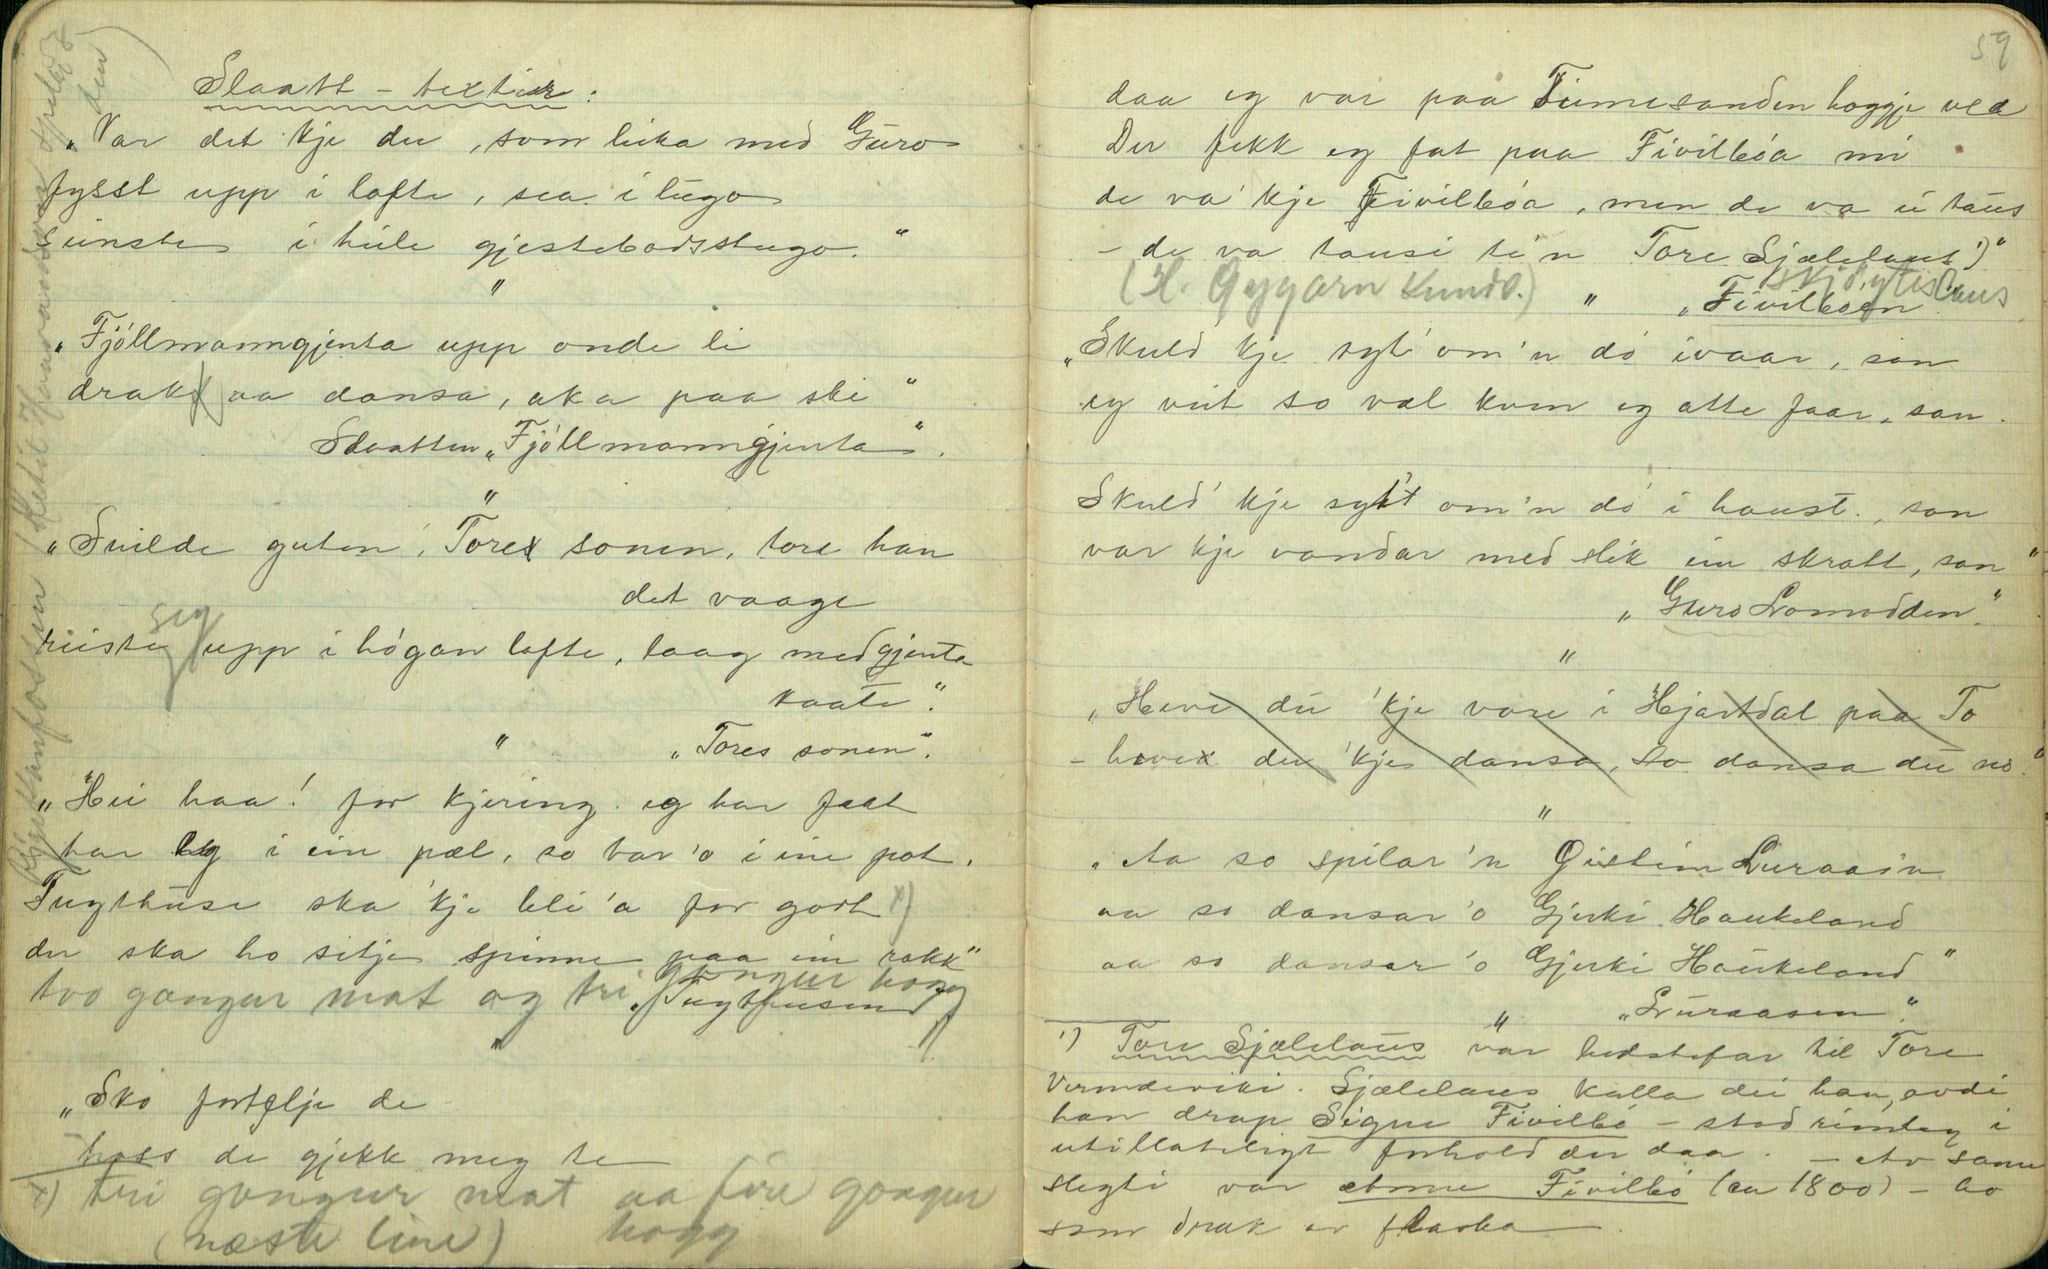 Slaatt - textir:
„Var det kje du, som leika med Guro
fysst upp i lofte, sea i lugo
sinste i hile gjestebodsstugo."
"
„Fjöllmanngjenta upp onde li
drakk aa dansa, aka paa ski"
Slaatten „Fjöllmanngjenta".
"
„Snilde guten, Tores sonen, tore han
det vaage
reiste sig upp i högan lofte, laag med gjenta
kaate."
" „Tores sonen".
„Hei haa! for kjering eg har faat
har eg i ein pæl, so var 'o i ein pot.
Tugthuse ska 'kje bli 'a for godt x)
der ska ho sitje spinne paa ein rokk"
tvo gongur mat og tri gongur hogg
„Tugthusen"
"
„Sko fortelje de
hoss de gjekk meg te
x) tri gongur mat aa fire gongur
(næste line) hogg
59
daa eg var paa Tinnesanden hoggje ved
Der fekk eg fat paa Fivilböa mi
de va' kje Fivilböa, men de va ei taus
- de va tausi te'n Tore Sjælelaus 1)"
(H. Gygarn Kunds.) " „Fivilböen"
„Skuld' kje syt om'n dö ivaar, san
eg veit so væl kvem eg atte faar, san.
Skuld' kje syt't om'n dö i haust, san
var kje vandar med slik ein skratt, san"
„Guro Lomodden."
"
„Heve du 'kje vore i Hjartdal paa To
- heve du 'kje dansa, so dansa du no."
"
„Aa so spilar 'n Øistein Luraain
aa so dansar 'o Gjerki Haukeland
aa so dansar 'o Gjerki Haukeland"
" „Luraasen."
1) Tore Sjælelaus var bedstefar til Tore
Vermdeviki. Sjælelaus kalla dei han, avdi
han drap Signe Fivilbö - stod rimleg i
utillateligt forhold der daa. - Av same
slegti var Anne Fivilbö (ca 1800) - ho
som drak av flaska